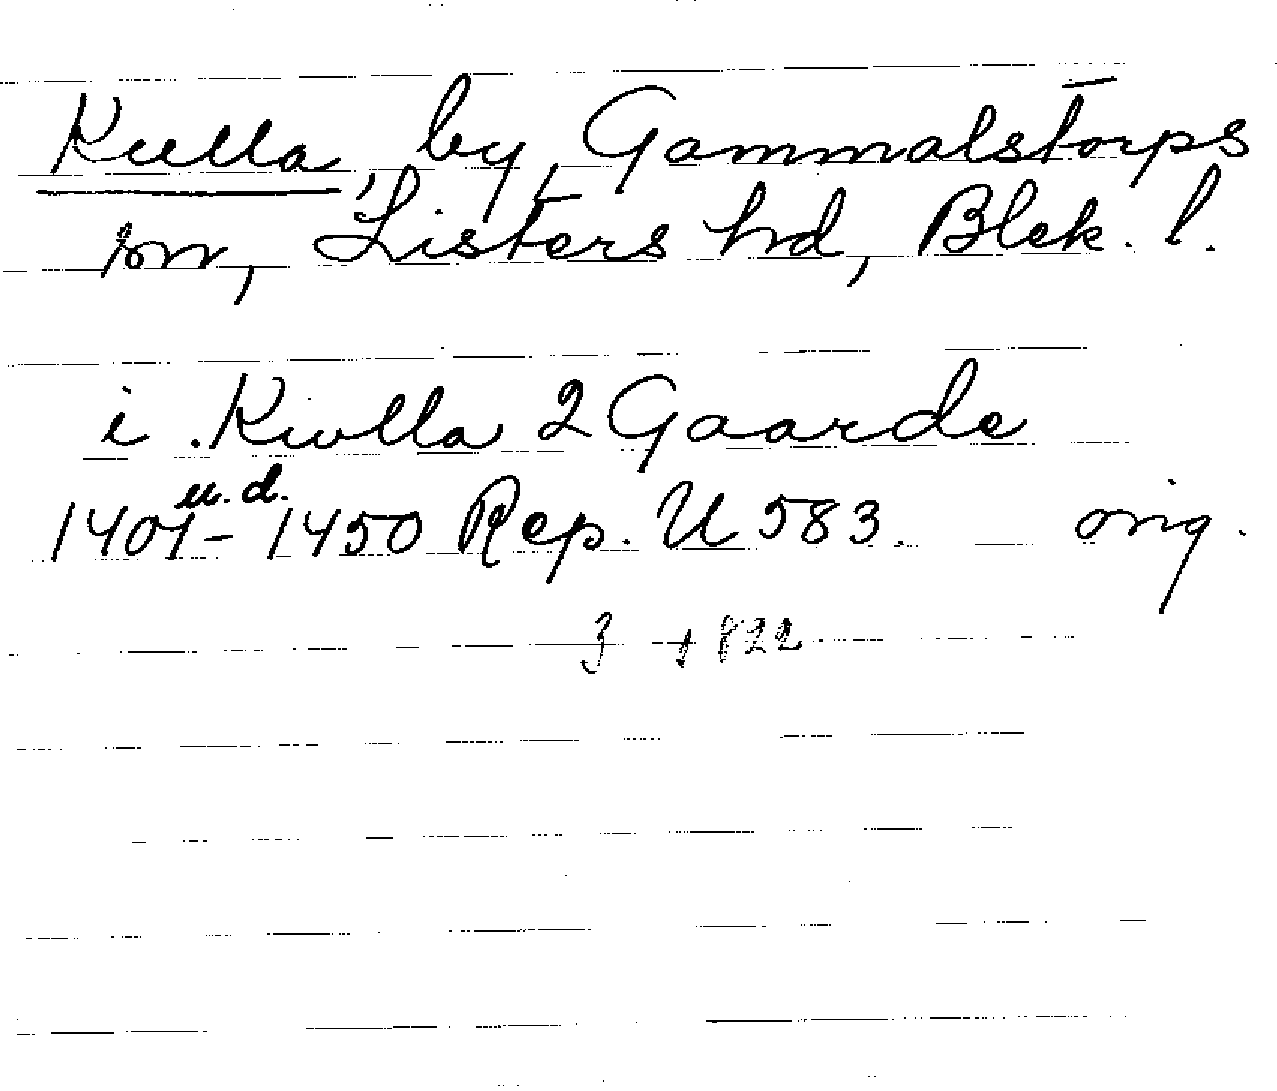 Kulla, by, Gammalstorps
sn, Listers hd, Blek. l.
i Kwlla 2 Gaarde
u.d.
1401-1450 Rep. U 583. orig.
822